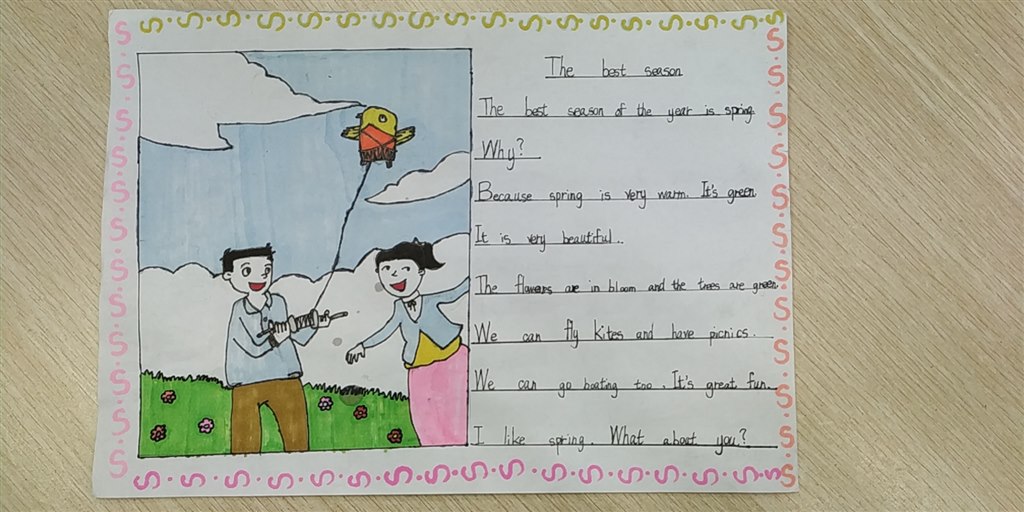 The best season
The best season of the year is spring.
Why?
Because spring is very warm. It's green
It is very beautiful..
The flowers are in bloom and the trees are green.
We can fly kites and have picnics.
We can go boating too. It's great fun.
I like spring. What about you?